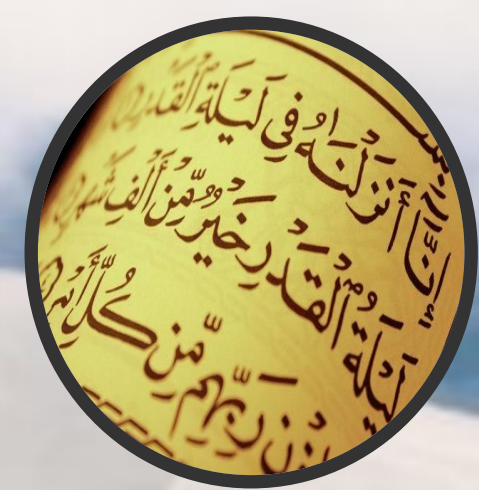 إِنَّآ أَنزَلْنَـٰهُ فِى لَيْلَةِ ٱلْقَدْرِ
لَيْلَةُ ٱلْقَدْرِ خَيْرٌ مِّنْ أَلْفِ شَهْرٍ
رَبِّهِم مِّن كُلِّ أَمْرٍ